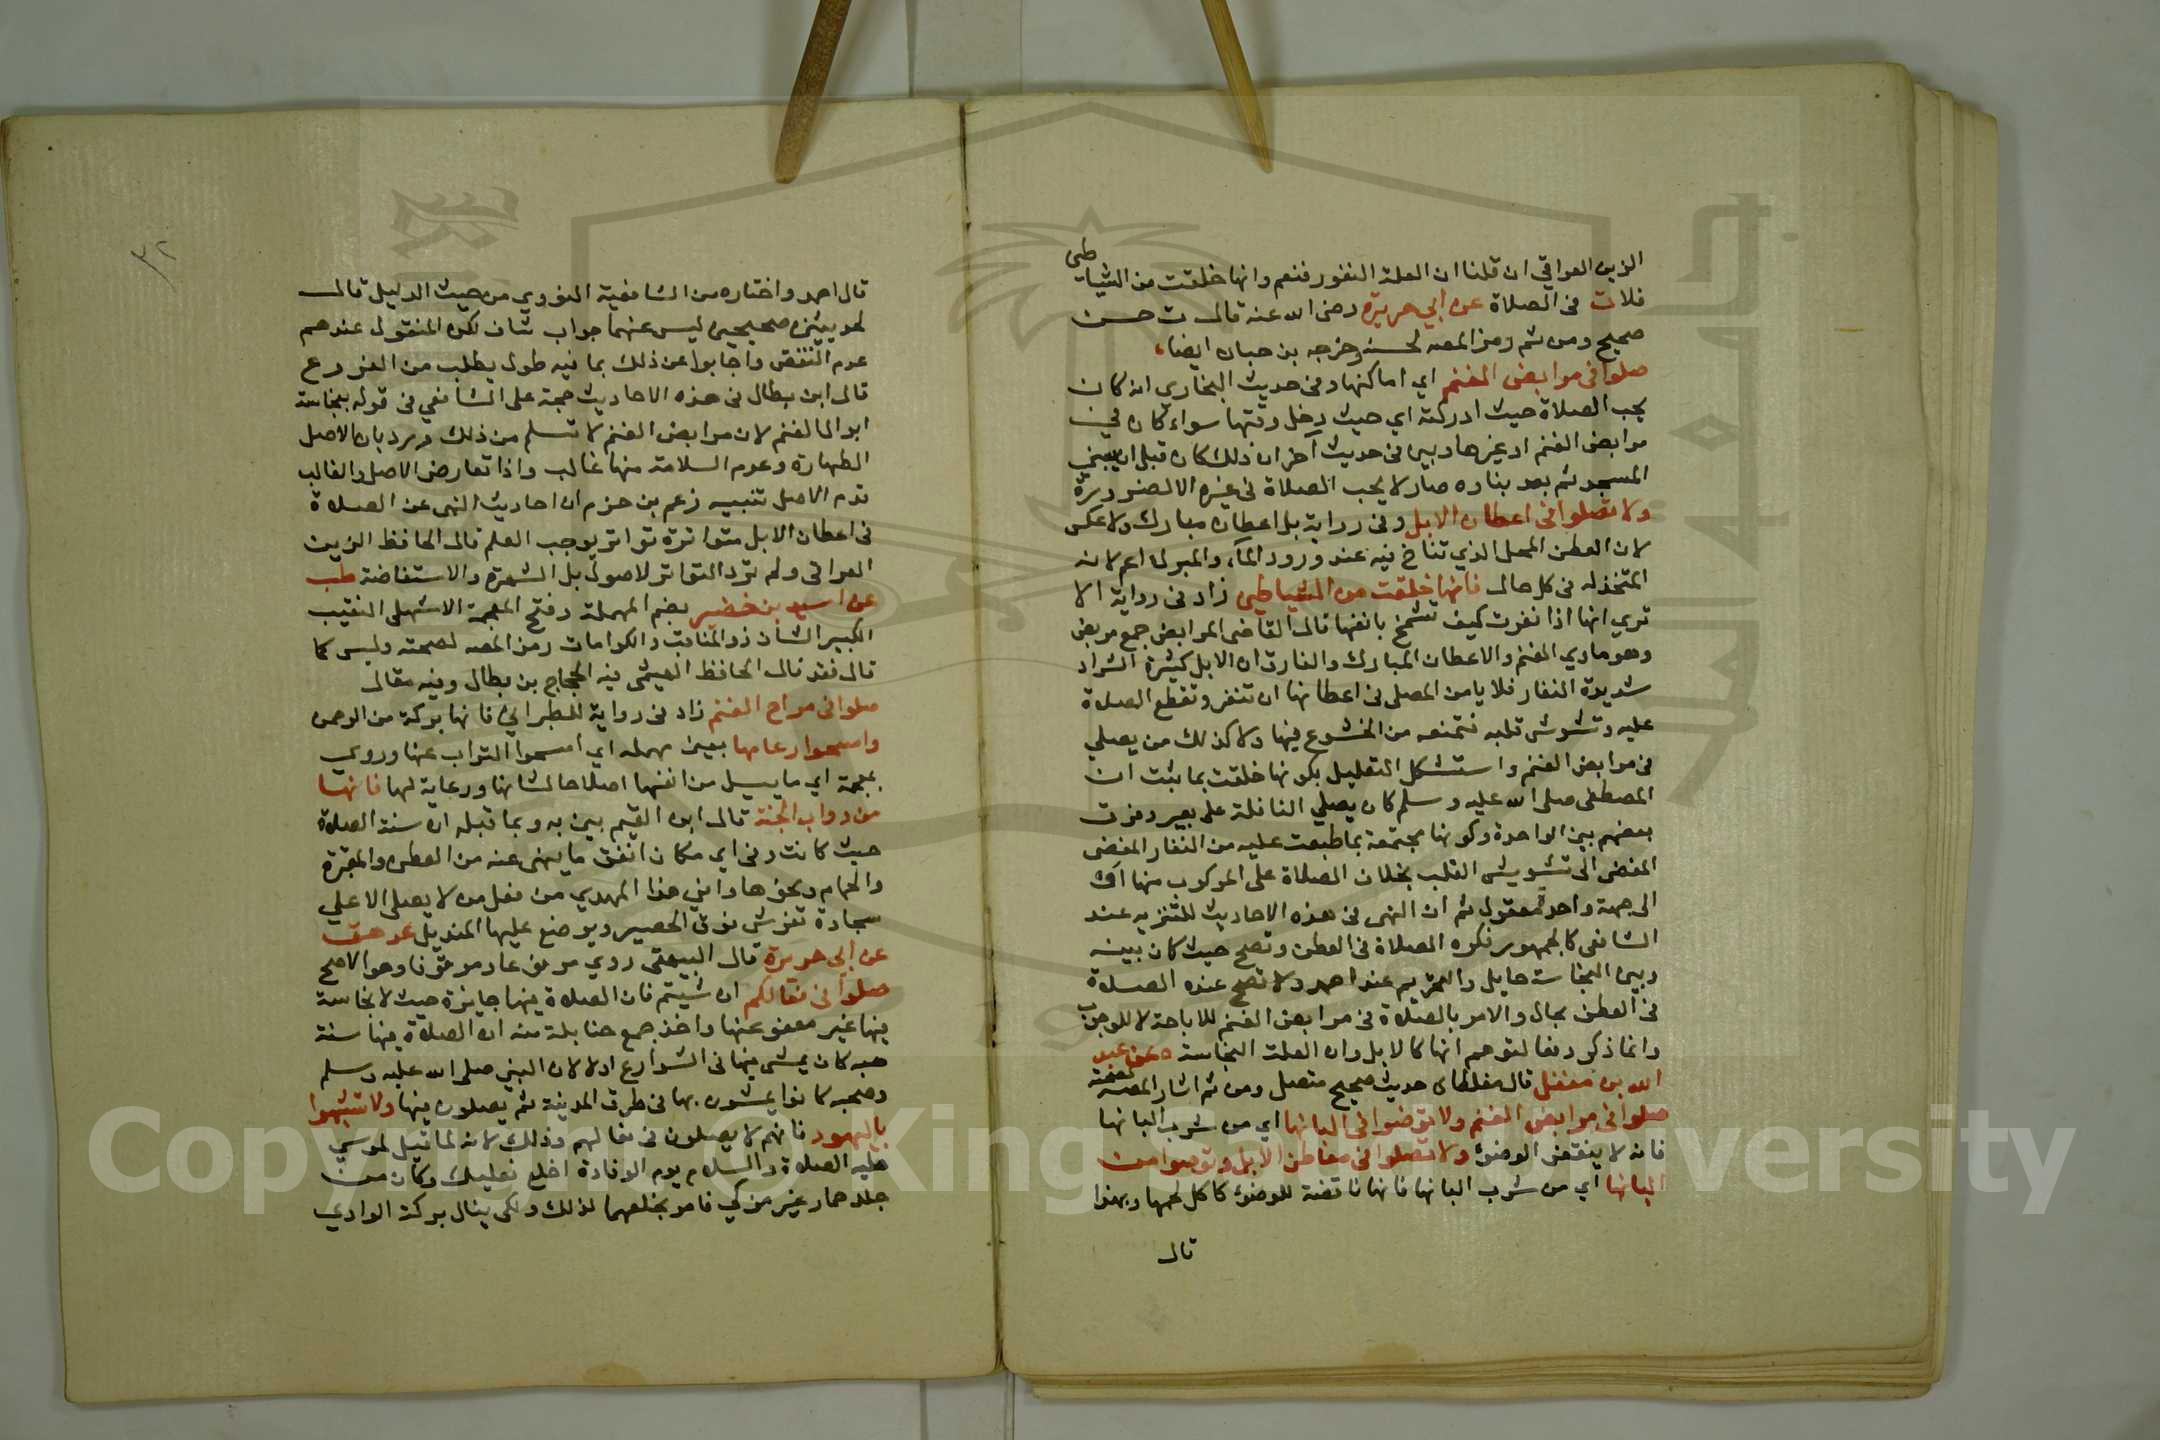 الزين العراقي ان قلنا ان العلة النفور فنعم وانها خلقت من الشياطين
فلا ت في الصلاة عن ابي هريرة رضي الله عنه قال ت حسن
صحيح ومن ثم رمز المصه لحسنه وخرجه بن حبان ايضا
صلوا في مرابض الغنم اي اماكنها وفي حديث البخاري انه كان
يحب الصلاة حيث ادركته اي حيث دخل وقتها سواء كان في
مرابض الغنم او غيرها وبين في حديث آخر ان ذلك كان قبل ان يبني
المسجد ثم بعد بناره صار لا يحب الصلاة في غيره الا لضرورة
ولا تصلوا في اعطان الابل وفي رواية بل اعطان مبارك ولا عكس
لان العطن المحل الذي تناخ فيه عند ورود الماء والمبرك اعم لانه
المتخذ له في كل حال فانها خلقت من الشياطين زاد في رواية الا
تري انها اذا نفرت كيف تشمخ بانفها قال القاضي المرابض جمع مربض
وهو ماوي الغنم والاعطان المبارك والفارق ان الابل كثيرة الشراد
شديدة النفار فلا يامن المصلي في اعطانها ان تنفر وتقطع الصلاة
عليه وتشوش قلبه فتمنعه من الخشوع فيها ولا كذلك من يصلي
في مرابض الغنم واستشكل التعليل بكونها خلقت بما ثبت ان
المصطفي صلي الله عليه وسلم كان يصلي النافلة علي بعير وفرق
بعضهم بين الواحدة وكونها مجتمعة بما طبعت عليه من النفار المفضي
المفضي الي تشويش القلب بخلاف الصلاة علي المركوب منها
الي جهة واحدة معقول ثم ان النهي في هذه الاحاديث للتنزيه عند
الشافعي كالجمهور فتكره الصلاة في العطن وتصح حيث كان بينه
وبين النجاسة حايل والتحريم عند احمد ولا تصح عنده الصلاة
في العطن بحال والامر بالصلاة في مرابض الغنم للاباحة لا للوجوب
وانما ذكر دفعا لتوهم انها كالابل وان العلت النجاسة ه عن عبد
الله بن مغفل قال مغلطاي حديث صحيح متصل ومن ثم اشار المصه لصحته
صلوا في مرابض الغنم ولا توضوا في البانها اي من شرب البانها
فانه لا ينقض الوضؤ ولا تصلوا في معاطن الابل وتوضوا من
البانها اي من شرب البانها فانها ناقضة للوضؤ كاكل لحمها وبهذا
قال
٣٢
قال احمد واختاره من الشافعية النووي من حيث الدليل قال
لحديثين صحيحين ليس عنهما جواب شاف لكن المنقول عندهم
عدم النقض واجابوا عن ذلك بما فيه طول يطلب من الفروع
قال ابن بطال في هذه الاحاديث حجة علي الشافعي في قوله بنجاسة
ابوال الغنم لان مرابض الغنم لا تسلم من ذلك ورد بان الاصل
الطهارة وعدم السلامة منها غالب واذا تعارض الاصل والغالب
قدم الاصل تنبيه زعم بن حزم ان احاديث النهي عن الصلاة
في اعطان الابل متواترة تواتر يوجب العلم قال الحافظ الزين
العراقي ولم يرد التواتر الاصولي بل الشهرة والاستفاضة طب
عن اسيد بن خضير بضم المهملة وفتح المعجمة الاشهلي النقيب
الكبير الشان ذو المناقب والكرامات رمز المصه لصحته وليس كما
قال فقد قال الحافظ الهيثمي فيه الحجاج بن بطال وفيه مقال
صلوا في مراح الغنم زاد في رواية للطبراني فانها بركة من الرحمن
وامسحوا رعامها بعين مهمله اي امسحوا التراب عنها وروي
بمعجمة اي ما يسيل من انفها اصلاحا لشانها ورعاية لها فانها
من دواب الجنة قال ابن القيم بين به وبما قبله ان سنة الصلاة
حيث كانت وفي اي مكان اتفق ما ينهي عنه من العطن والمقبرة
والحمام ونحوها واين هذا الهدي من فعل من لا يصلي الا علي
سجادة تفرش فوق الحصير ويوضع عليها المنديل عد هق
عن ابي هريرة قال البيهقي روي مرفوعا وموقوفا وهو الاصح
صلوا في نعالكم ان شيتم فان الصلاة فيها جايزة حيث لا نجاسة
فيها غير معفو عنها واخذ جمع حنابلة منه ان الصلاة فيها سنة
هبه كان يمشي فيها في الشوارع اولا لان النبي صلي الله عليه وسلم
وصحبه كانوا يمشون بها في طرق المدينة ثم يصلون فيها ولا تشبهوا
باليهود فانهم لا يصلون في نعالهم وذلك لانه لما قيل لموسي
عليه الصلاة والسلام يوم الوفادة اخلع نعليك وكان من
جلد حمار غير مزكي فامر بخلعهما لذلك ولكي ينال بركة الوادي
Copyright © King Saud University